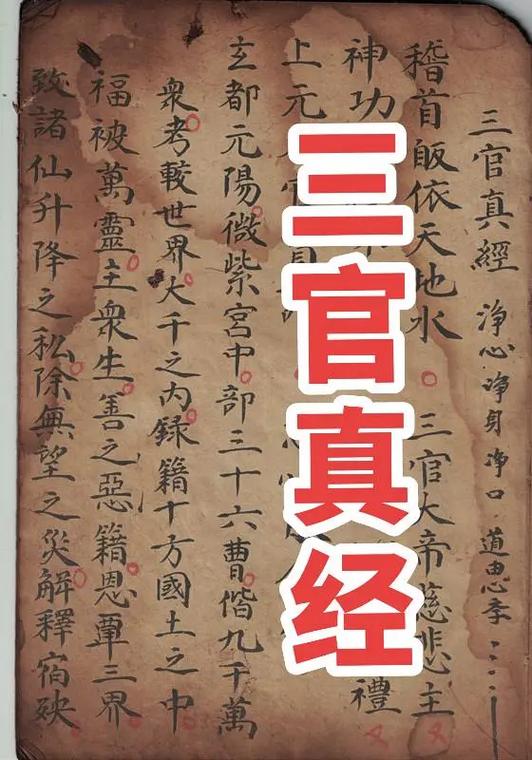 三官真經 淨心 淨身 淨口 道由心
稽首皈依天地水 三官大帝慈悲主
神功 禮
上元
玄都元陽微紫宮中部三十六曹偕九千萬
衆考較世界大千之內録籍十方國土之中
福被萬靈主衆生善之惡籍恩覃三界
致諸仙升降之私除無望之災解釋宿殃
三官真经